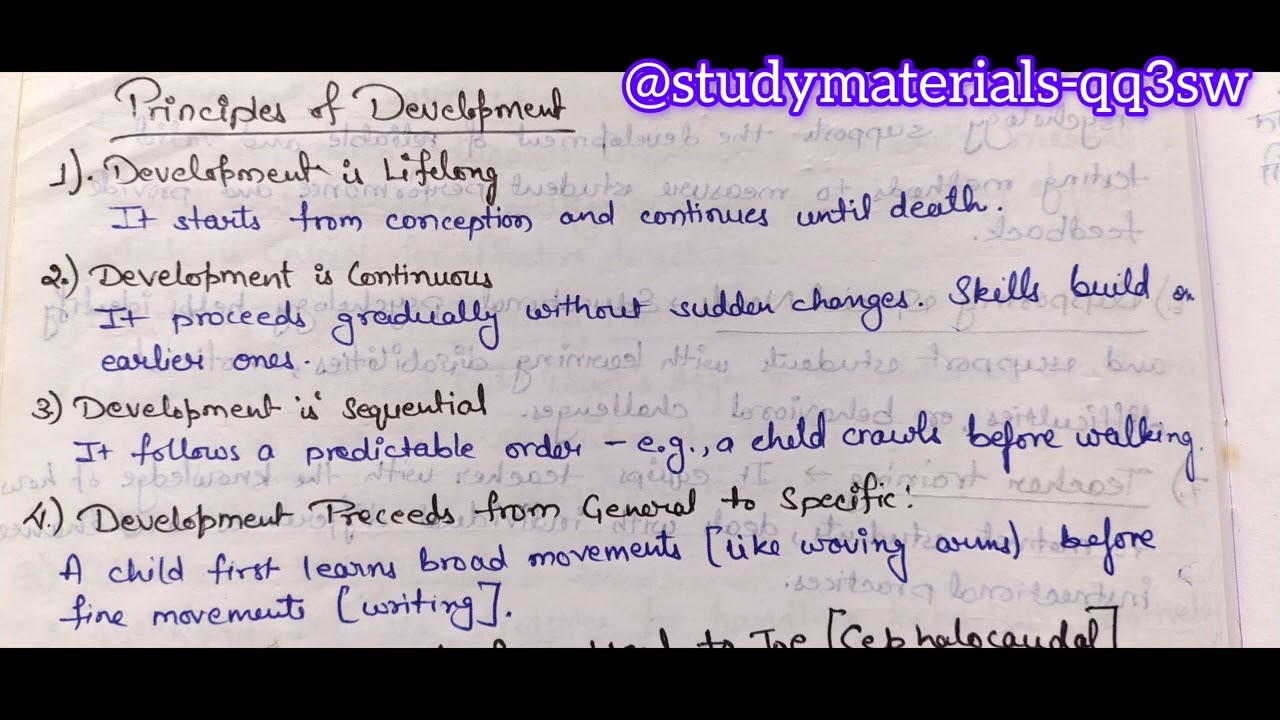 @studymaterials-qq3sw
Principles of Development
1). Development is Lifelong
It starts from conception and continues until death.
2.) Development is Continuous
It proceeds gradually without sudden changes. Skills build on
earlier ones.
3.) Development is Sequential
It follows a predictable order – e.g., a child crawls before walking.
4.) Development Preceeds from General to Specific:
A child first learns broad movements [like waving arms) before
fine movements [writing].
to Toe [Cephalocaudal]